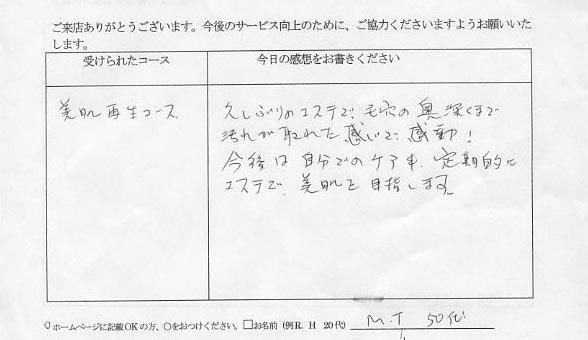 ご来店ありがとうございます。今後のサービス向上のために、ご協力くださいますようお願いいた
します。
受けられたコース
今日の感想をお書きください
美肌再生コース
久しぶりのエステで、毛穴の奥深くまで
汚れが取れた感じで感動！
今後は自分でのケアも、定期的に
エステで、美肌を目指します。
○ホームページに記載OKの方、○をおつけください。□お名前（例R. H 20代） M.T 50代